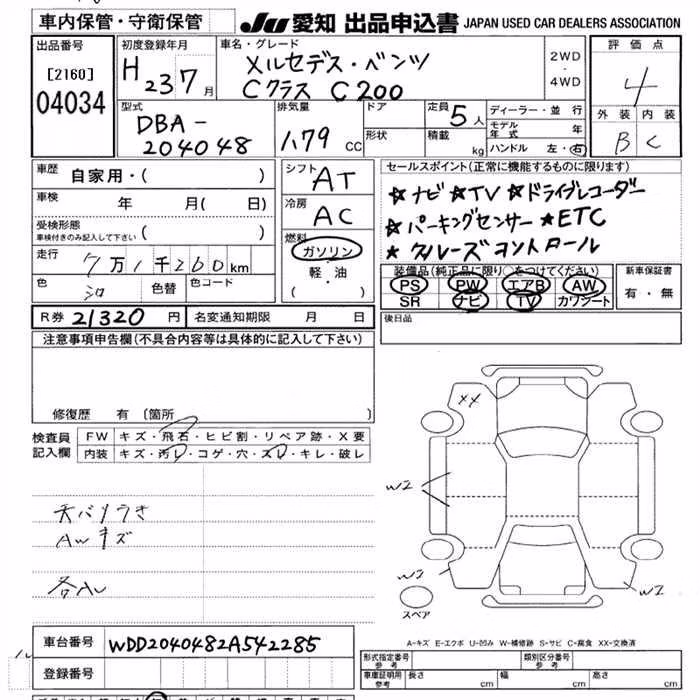 車内保管・守衛保管
JU 愛知 出品申込書 JAPAN USED CAR DEALERS ASSOCIATION
出品番号
[2160]
04034
初度登録年月
H 23 7 月
車名・グレード
メルセデス・ベンツ
Cクラス C200
2WD
・
4WD
評価点
4
外装 内装
B C
型式
DBA-
204048
排気量
1.79 CC
ドア
形状
定員 5 人
積載 kg
ディーラー・並行
モデル年式 年
ハンドル 左・右
車歴
自家用・( )
車検 年 月( 日)
受検形態
車検付きのみ記入して下さい ( )
走行
7万1千260km
色 シロ 色替 色コード
シフト
AT
冷房
AC
燃料
ガソリン
・
軽・油
( )
セールスポイント(正常に機能するものに限ります)
★ナビ ★TV ★ドライブレコーダー
★パーキングセンサー ★ETC
★クルーズコントロール
装備品(純正品に限り○をつけてください)
PS PW エアB AW
SR ナビ TV カワシート
新車保証書
有・無
R券 21320 円 名変通知期限 月 日
後日品
注意事項申告欄(不具合内容等は具体的に記入して下さい)
修復歴 有 (箇所 )
検査員
記入欄
FW キズ・飛石・ヒビ割・リペア跡・X要
内装 キズ・汚レ・コゲ・穴・スレ・キレ・破レ
天バリうき
AWキズ
XX
W2
W2
W2
スペア
A-キズ E-エクボ U-凹み W-補修跡 S-サビ C-腐食 XX-交換済
車台番号 WDD2040482A542285
登録番号
形式指定番号
参考
類別区分番号
参考
車庫証明用
参考
長さ cm 幅 cm 高さ cm